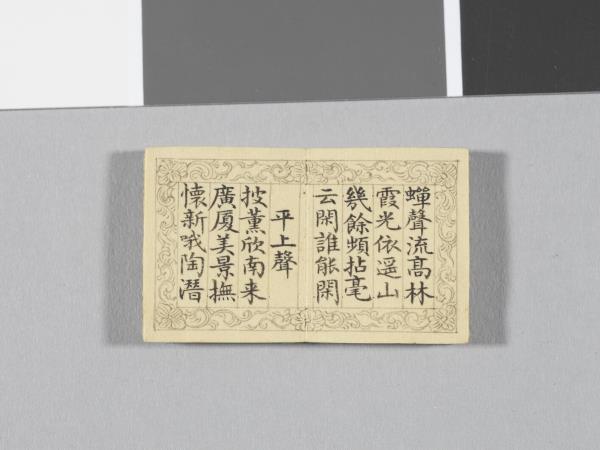 蟬聲流髙林
霞光依遥山
幾餘頻拈毫
云閑誰能閑
平上聲
披薫欣南来
廣厦美景撫
懐新哦陶潛